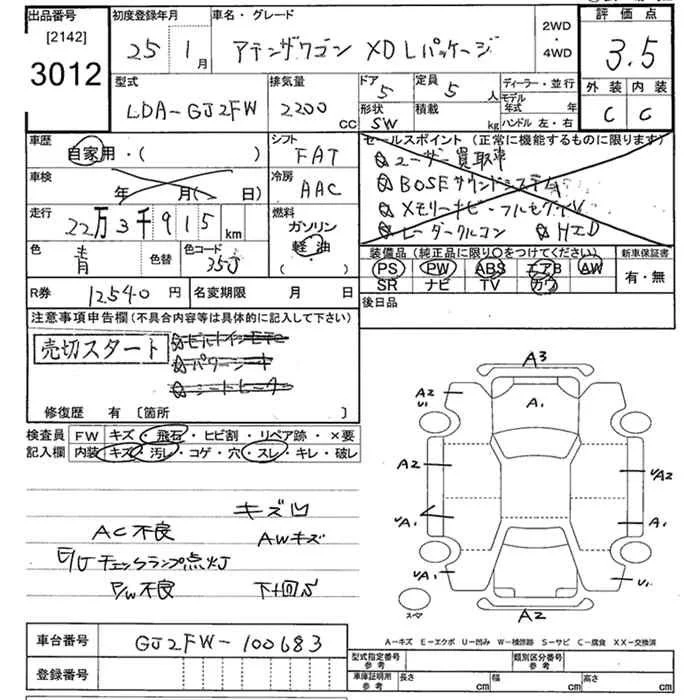 出品番号
[2142]
3012
初度登録年月
25 1月
車名・グレード
アテンザワゴン XDLパッケージ
2WD
・
4WD
評価点
3.5
外装 内装
C C
型式
LDA-GJ2FW
排気量
2200 CC
ドア 5
定員 5 人
形状 SW
積載 kg
ディーラー・並行
モデル年式 年
ハンドル 左・右
車歴
自家用・( )
シフト
FAT
セールスポイント(正常に機能するものに限ります)
ユーザー買取車
BOSEサウンドシステム
メモリーナビ・フルセグTV
レーダークルコン HID
車検
年 月( 日)
冷房
AAC
走行
22万3千915km
燃料
ガソリン
軽油
色
青
色替
色コード
35J
装備品(純正品に限り○をつけてください)
PS PW ABS エアB AW
SR ナビ TV カワ
新車保証書
有・無
R券 12540円
名変期限 月 日
後日品
注意事項申告欄(不具合内容等は具体的に記入して下さい)
売切スタート
パワーシート
シートヒーター
修復歴 有 〔箇所 〕
検査員記入欄
FW キズ・飛石・ヒビ割・リペア跡・×要
内装 キズ・汚レ・コゲ・穴・スレ・キレ・破レ
キズ凹
AC不良 AWキズ
E/Gチェックランプ点灯
P/W不良 下廻S
A3
A2
U1
A1
A2
UA2
UA1
A1
UA1
U1
スペア
A2
A-キズ E-エクボ U-凹み W-補修跡 S-サビ C-腐食 XX-交換済
車台番号
GJ2FW-100683
登録番号
型式指定番号
参考
類別区分番号
参考
車庫証明用
参考
長さ cm 幅 cm 高さ cm